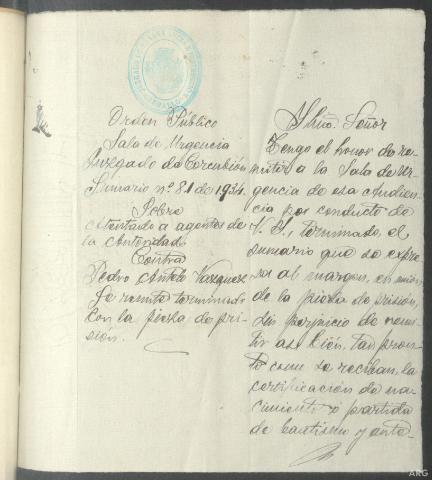 Orden Público
Sala de Urgencia
Juzgado de Corcubión
Sumario nº 81 de 1934.
Sobre
Atentado a agentes de
la Autoridad
Contra
Pedro Antelo Vazquez
Se remite terminado
con la pieza de pri-
sión.
Iltmo. Señor
Tengo el honor de re-
mitir a la Sala de Ur-
gencia de esa Audien-
cia por conducto de
V. I., terminado el
sumario que se expre-
sa al margen, en unión
de la pieza de prisión,
sin perjuicio de remi-
tir así bien, tan pron-
to como se reciban, la
certificación de na-
cimiento o partida
de bautismo y ante-
ARG